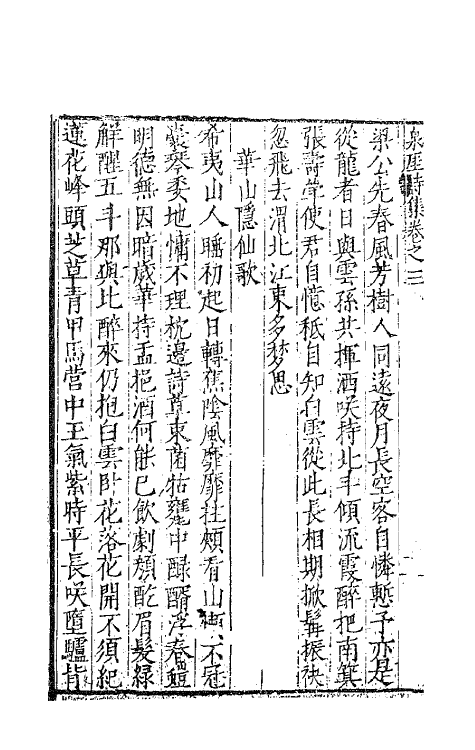 泉厓詩集卷之三
梁公先春風芳樹人同遠夜月長空客自憐慙予亦是
從龍者日與雲孫共揮洒咲持北斗傾流霞醉把南箕
張壽斝使君自憶秪自知白雲從此長相期掀髯振袂
忽飛去渭北江東多梦思
華山隱仙歌
希夷山人睡初起日轉蕉陰風靡靡拄頰看山 不冠
囊琴委地慵不理枕邊詩草束菌牯甕中醁醑浮春螘
明德無因暗歲華持盃挹酒何能已飲劇顏酡眉髮綠
解酲五斗那與比醉來仍抱白雲卧花落花開不須紀
蓮花峰頭芝草青甲馬營中王氣紫時平長咲墮驢背